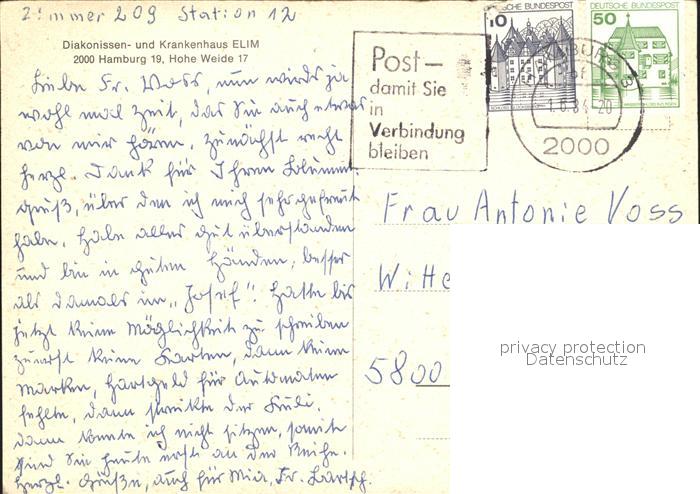 Zimmer 209 Station 12
Diakonissen- und Krankenhaus ELIM
2000 Hamburg 19, Hohe Weide 17
Liebe Fr. Voss, nun wird's ja
wohl mal Zeit, das Sie auch etwas
von mir hören. Zunächst recht
herzl. Dank für Ihren Blumen-
gruß, über den ich mich sehr gefreut
habe. Habe alles gut überstanden
und bin in guten Händen, besser
als damals im "Josef". Hatte bis
jetzt keine Möglichkeit zu schreiben
zuerst keine Karten, dann keine
Marken, Hartgeld für Automaten
fehlte, dann streikte der Kuli.
dann konnte ich nicht sitzen, somit
sind Sie heute erst an der Reihe.
Herzl. Grüße, auch für Mia, Fr.
Post –
damit Sie
in
Verbindung
bleiben
DEUTSCHE BUNDESPOST
10
DEUTSCHE BUNDESPOST
50
2000
Frau Antonie Voss
Witte
5800
privacy protection
Datenschutz